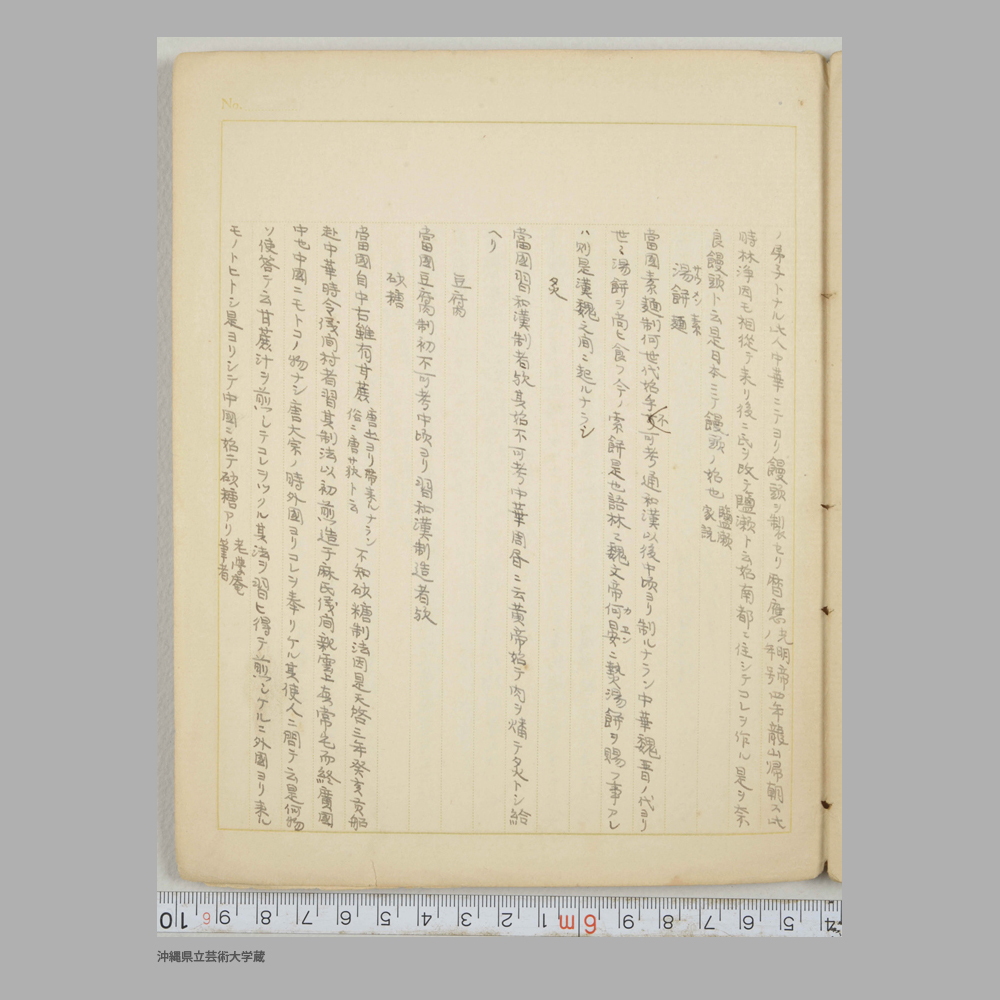 No.
ノ弟子トナル此人中華ニテヨリ饅頭ヲ製セリ暦應光明帝ノ年号四年龍山帰朝ス此
時林浄因モ相從テ来リ後ニ氏ヲ改テ鹽瀬ト云始南都ニ住シテコレヲ作ル是ヲ奈
良饅頭ト云是日本ニテ饅頭ノ始也鹽瀬家説
湯餅 サウメン 素麺
當國素麺制何世代始乎不可考通和漢以後中頃ヨリ制ルナラン中華魏晋ノ代ヨリ
世ニ湯餅ヲ尚ヒ食フ今ノ索餅是也語林ニ魏文帝何晏カアンニ熱湯餅ヲ賜フ事アレ
ハ則是漢魏之間ニ起ルナラシ
炙
當國習和漢制者欤其始不可考中華周書ニ云黄帝始テ肉ヲ燔テ炙トシ給
ヘリ
豆腐
當國豆腐制初不可考中頃ヨリ習和漢制造者欤
砂糖
當國自中古雖有甘蔗唐土ヨリ帶来ルナラン俗ニ唐サ荻ト云不知砂糖制法因是天啓三年癸亥貢船
赴中華時令儀間村者習其制法以初煎造于麻氏儀間親雲上真常宅而終廣國
中也中國ニモトコノ物ナシ唐大宗ノ時外國ヨリコレヲ奉リケル其使人ニ問テ云是何物
ソ使答テ云甘蔗汁ヲ煎シテコレヲツクル其法ヲ習ヒ得テ煎シケルニ外國ヨリ来ル
モノトヒトシ是ヨリシテ中國ニ始テ砂糖アリ老學庵筆者
沖縄県立芸術大学蔵